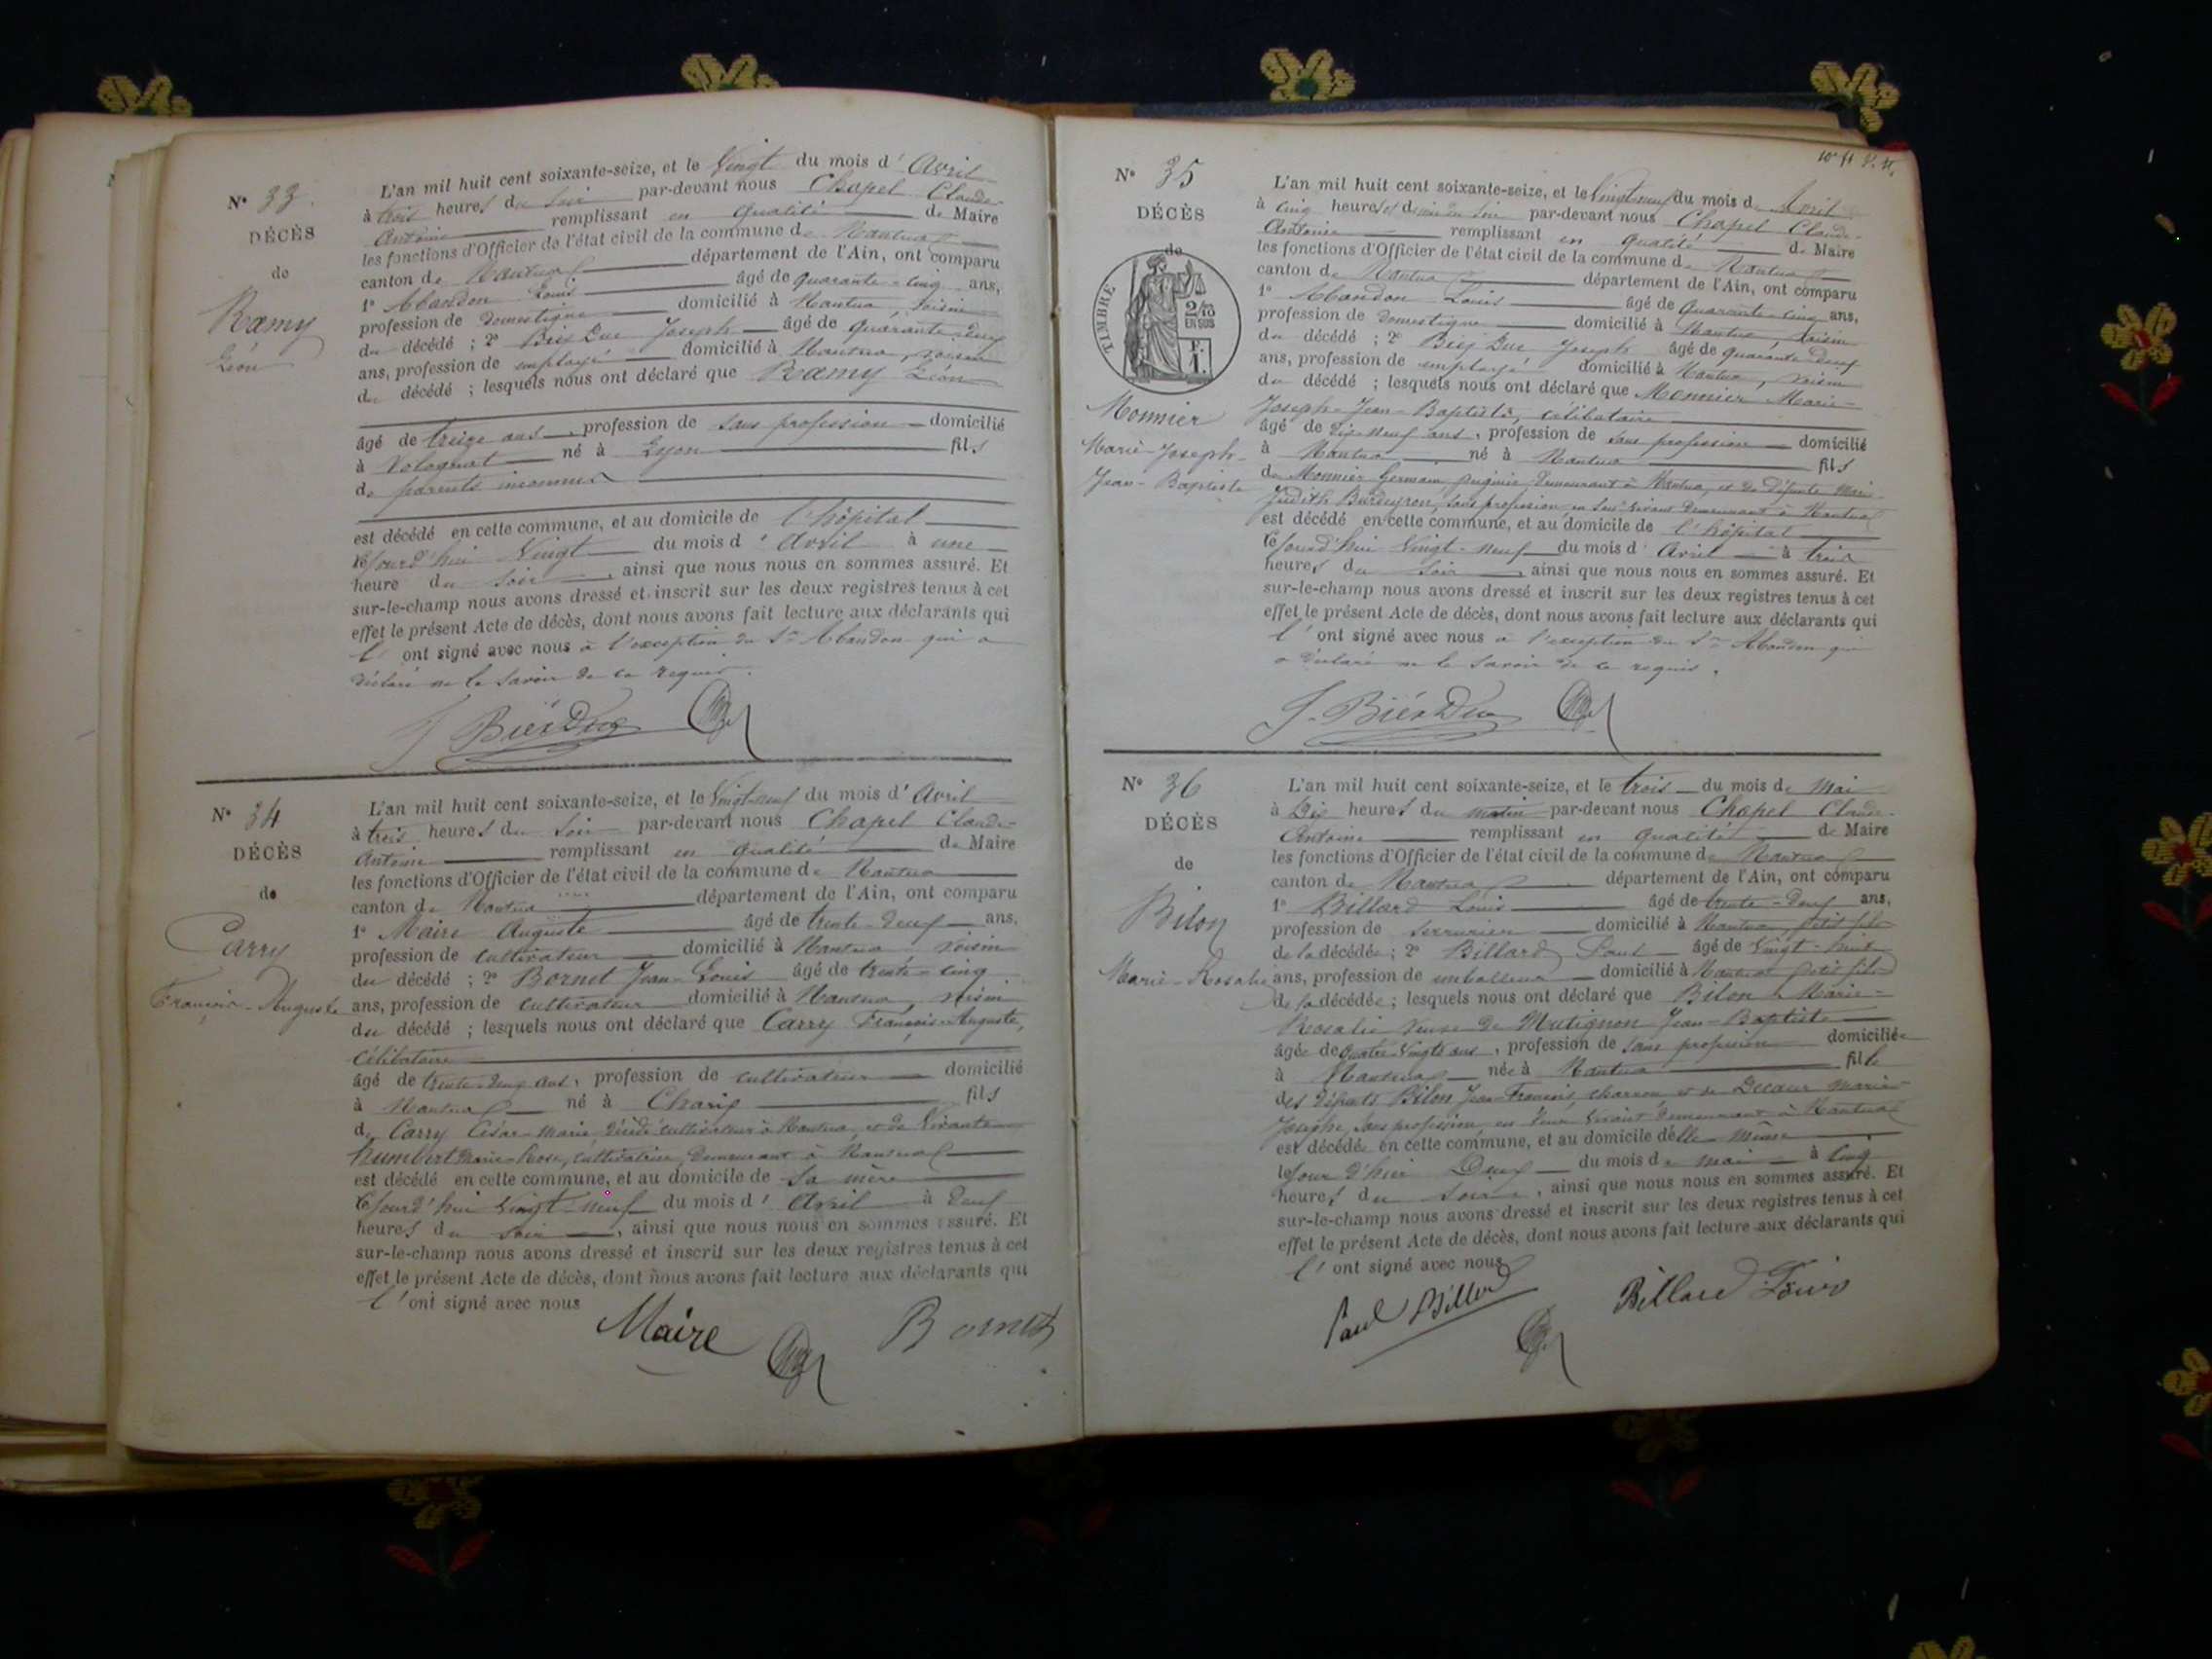 N° 33.
DÉCÈS
de
Ramy
Léon
L'an mil huit cent soixante-seize, et le Vingt du mois d' Avril
à trois heures du soir par-devant nous Chapel Claude-
Antoine remplissant en qualité de Maire
les fonctions d'Officier de l'état civil de la commune de Nantua
canton de Nantua département de l'Ain, ont comparu
1° Abandon Louis âgé de quarante-cinq ans,
profession de domestique domicilié à Nantua, voisin
du décédé ; 2° Biex Duc Joseph âgé de quarante-deux
ans, profession de employé domicilié à Nantua, voisin
du décédé ; lesquels nous ont déclaré que Ramy Léon
âgé de treize ans, profession de sans profession domicilié
à Volognat né à Lyon fils
de parents inconnus
est décédé en cette commune, et au domicile de l'hôpital
cejourd'hui Vingt du mois d' Avril à une
heure du soir, ainsi que nous nous en sommes assuré. Et
sur-le-champ nous avons dressé et inscrit sur les deux registres tenus à cet
effet le présent Acte de décès, dont nous avons fait lecture aux déclarants qui
l'ont signé avec nous à l'exception du Sr Abandon qui a
déclaré ne le savoir de ce requis.
J. Biex Duc
N° 34
DÉCÈS
de
Carry
François-Auguste
L'an mil huit cent soixante-seize, et le Vingt-neuf du mois d' Avril
à trois heures du soir par-devant nous Chapel Claude-
Antoine remplissant en qualité de Maire
les fonctions d'Officier de l'état civil de la commune de Nantua
canton de Nantua département de l'Ain, ont comparu
1° Maire Auguste âgé de trente-deux ans,
profession de cultivateur domicilié à Nantua, voisin
du décédé ; 2° Bornet Jean-Louis âgé de trente-cinq
ans, profession de cultivateur domicilié à Nantua, voisin
du décédé ; lesquels nous ont déclaré que Carry François-Auguste,
célibataire
âgé de trente-deux ans, profession de cultivateur domicilié
à Nantua né à Charix fils
de Carry César-Marie décédé cultivateur à Nantua, et de vivante
humbert Marie-Rose, cultivatrice, demeurant à Nantua
est décédé en cette commune, et au domicile de sa mère
cejourd'hui Vingt-neuf du mois d' Avril à deux
heures du soir, ainsi que nous nous en sommes assuré. Et
sur-le-champ nous avons dressé et inscrit sur les deux registres tenus à cet
effet le présent Acte de décès, dont nous avons fait lecture aux déclarants qui
l'ont signé avec nous
Maire Bornet
N° 35
DÉCÈS
de
TIMBRE
2/10
EN SUS
F.
1.
Monnier
Marie-Joseph-
Jean-Baptiste
L'an mil huit cent soixante-seize, et le Vingt-neuf du mois d Avril
à cinq heures du soir par-devant nous Chapel Claude-
Antoine remplissant en qualité de Maire
les fonctions d'Officier de l'état civil de la commune de Nantua
canton de Nantua département de l'Ain, ont comparu
1° Abandon Louis âgé de quarante-cinq ans,
profession de domestique domicilié à Nantua voisin
du décédé ; 2° Biex Duc Joseph âgé de quarante-deux
ans, profession de employé domicilié à Nantua, voisin
du décédé ; lesquels nous ont déclaré que Monnier Marie-
Joseph-Jean-Baptiste, célibataire
âgé de dix-neuf ans, profession de sans profession domicilié
à Nantua né à Nantua fils
de Monnier Germain demeurant à Nantua, et de défunte Marie
Judith sans profession en son vivant demeurant à Nantua
est décédé en cette commune, et au domicile de l'hôpital
cejourd'hui Vingt-neuf du mois d' Avril à trois
heures du soir, ainsi que nous nous en sommes assuré. Et
sur-le-champ nous avons dressé et inscrit sur les deux registres tenus à cet
effet le présent Acte de décès, dont nous avons fait lecture aux déclarants qui
l'ont signé avec nous à l'exception du Sr Abandon qui
a déclaré ne le savoir de ce requis.
J. Biex Duc
N° 36
DÉCÈS
de
Bilon
Marie-Rosalie
L'an mil huit cent soixante-seize, et le trois du mois de Mai
à Dix heures du matin par-devant nous Chapel Claude-
Antoine remplissant en qualité de Maire
les fonctions d'Officier de l'état civil de la commune de Nantua
canton de Nantua département de l'Ain, ont comparu
1° Billard Louis âgé de trente-deux ans,
profession de serrurier domicilié à Nantua, petit fils
de la décédée ; 2° Billard Paul âgé de Vingt-huit
ans, profession de emballeur domicilié à Nantua petit fils
de la décédée ; lesquels nous ont déclaré que Bilon Marie-
Rosalie veuve de Mutignon Jean-Baptiste
âgée de quatre-vingts ans, profession de sans profession domiciliée
à Nantua née à Nantua fille
des défunts Bilon Jean-François, charron et de Decoeur Marie-
Josephe, sans profession, en leur vivant demeurant à Nantua
est décédée en cette commune, et au domicile d'elle même
le jour d'hier Deux du mois de mai à cinq
heures du soir, ainsi que nous nous en sommes assuré. Et
sur-le-champ nous avons dressé et inscrit sur les deux registres tenus à cet
effet le présent Acte de décès, dont nous avons fait lecture aux déclarants qui
l'ont signé avec nous
Paul Billard Billard Louis